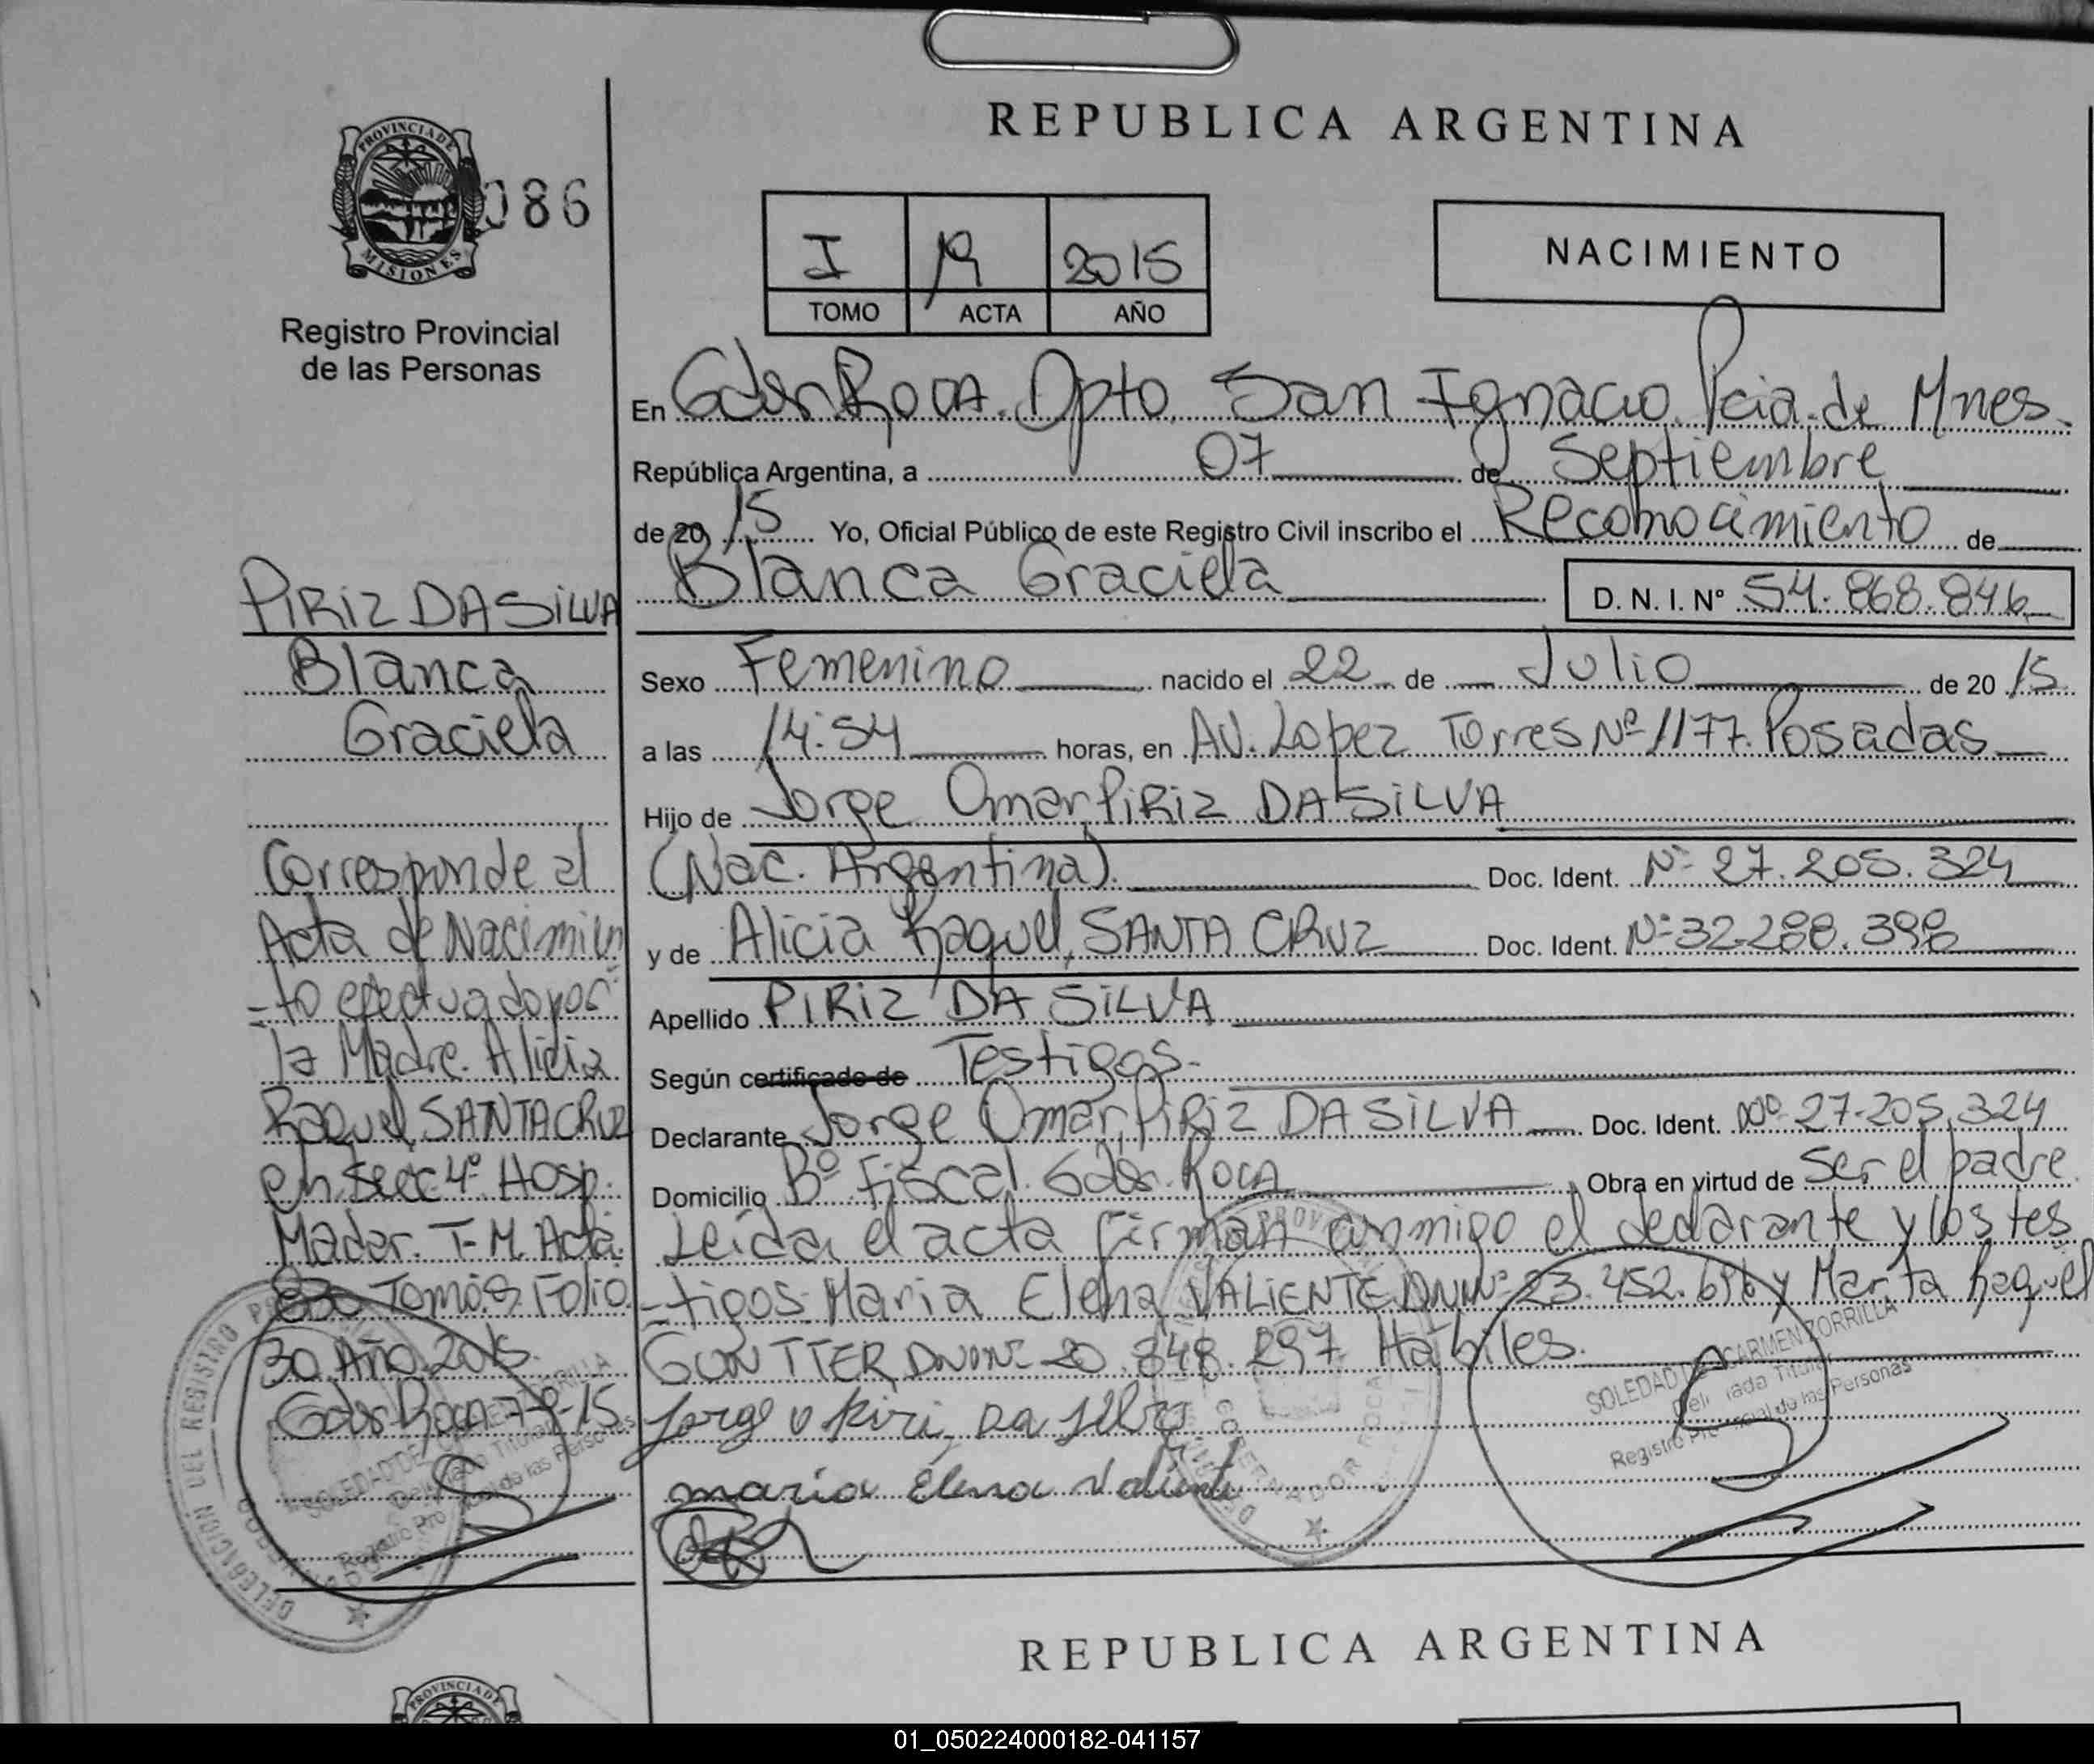 REPUBLICA ARGENTINA
PROVINCIA DE
MISIONES
086
Registro Provincial
de las Personas
I 19 2015
TOMO ACTA AÑO
NACIMIENTO
En Gdor Roca. Dpto. San Ignacio. Pcia. de Mnes.
República Argentina, a 07 de Septiembre
de 20 15 Yo, Oficial Público de este Registro Civil inscribo el Reconocimiento de
Blanca Graciela D. N. I. N° 54.868.846
Sexo Femenino nacido el 22 de Julio de 20 15
a las 14:54 horas, en Av. Lopez Torres Nº 1177. Posadas
Hijo de Jorge Omar PIRIZ DA SILVA
(Nac. Argentina). Doc. Ident. Nº 27.205.324
y de Alicia Raquel, SANTA CRUZ Doc. Ident. Nº 32.288.398
Apellido PIRIZ DA SILVA
Según certificado de Testigos.
Declarante Jorge Omar, PIRIZ DA SILVA Doc. Ident. Nº 27.205.324
Domicilio Bº Fiscal. Gdor. Roca Obra en virtud de Ser el padre
Leida el acta firman conmigo el declarante y los tes
-tigos: Maria Elena VALIENTE DNI Nº 23.452.696 y Marta Raquel
GUNTTER, DNI Nº 20.848.297 Habiles.
Jorge o Piri Da Silva
maria Elena Valiente
PIRIZ DA SILVA
Blanca
Graciela
Corresponde al
Acta de Nacimien
-to efectuado por
la Madre. Alicia
Raquel SANTA CRUZ
en Secc 4º Hosp.
Mader. T-M. Acta
Tomo Folio
30 Año 2015.
Gdor Roca 7-9-15
SOLEDAD DEL CARMEN ZORRILLA
Delegada Titular
Registro Provincial de las Personas
SOLEDAD DEL CARMEN ZORRILLA
Delegada Titular
Registro Provincial de las Personas
DELEGACION DEL REGISTRO
GOBERNADOR ROCA
REPUBLICA ARGENTINA
PROVINCIA DE
01_050224000182-041157